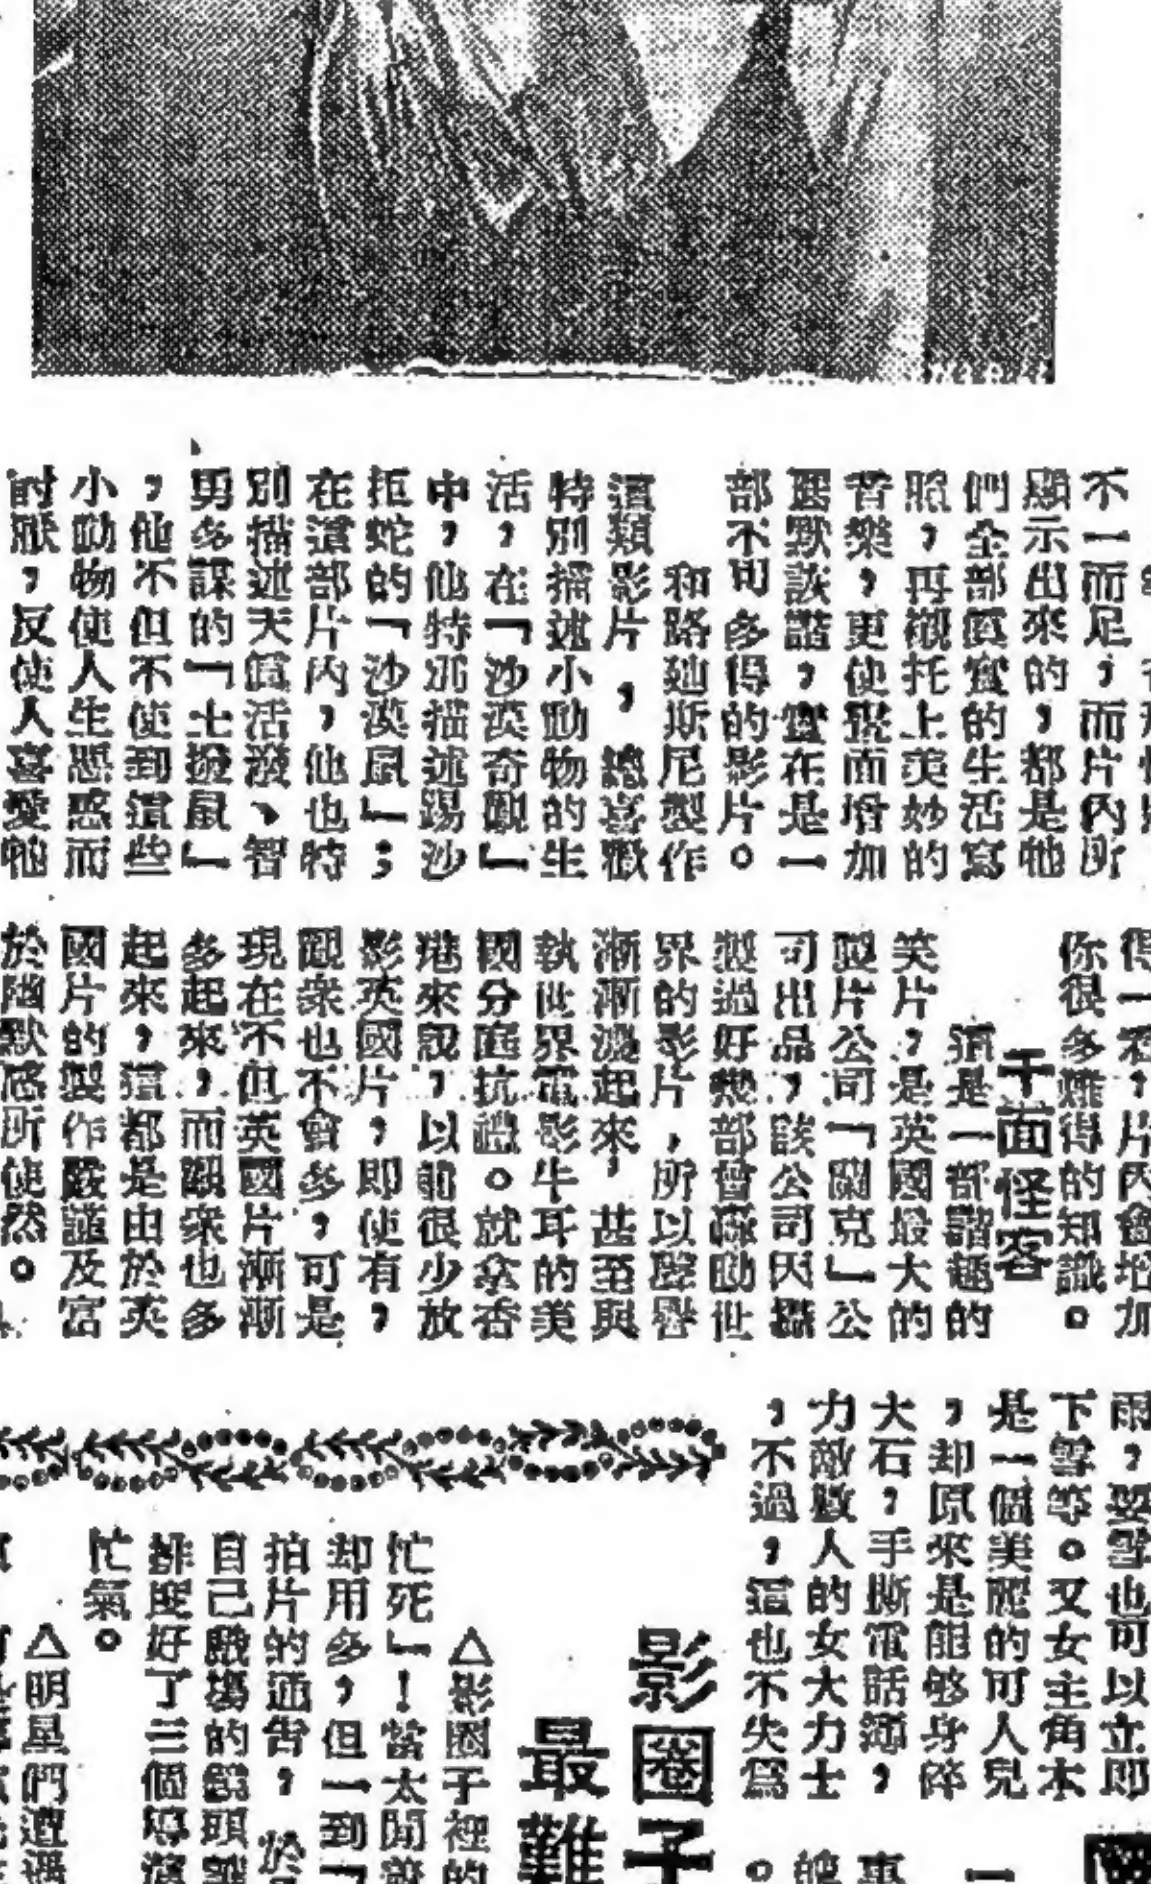 不一而足，而片內所
顯示出來的，都是牠
們全部眞實的生活寫
照，再襯托上美妙的
音樂，更使銀面增加
幽默詼諧，實在是一
部不可多得的影片。
和路迪斯尼製作
這類影片，總喜歡
特別描述小動物的生
活，在「沙漠奇觀」
中，他特別描述踢沙
拒蛇的「沙漠鼠」；
在這部片內，他也特
別描述天眞活潑、智
勇多謀的「土撥鼠」
，他不但不使到這些
小動物使人生惡感而
討厭，反使人喜愛牠
得一看，片內會增加
你很多難得的知識。
千面怪客
這是一部諧趣的
笑片，是英國最大的
製片公司「蘭克」公
司出品，該公司因攝
製過好幾部曾轟動世
界的影片，所以聲譽
漸漸漫起來，甚至與
執世界電影牛耳的美
國分庭抗禮。就拿香
港來說，以前很少放
影英國片，即使有，
觀衆也不會多，可是
現在不但英國片漸漸
多起來，而觀衆也多
起來，這都是由於英
國片的製作嚴謹及富
於幽默感所使然。
雨，要雪也可以立即
下雪等。又女主角本
是一個美麗的可人兒
，却原來是能够身碎
大石，手撕電話簿，
力敵數人的女大力士
，不過，這也不失爲
影圈子
最難
△影圈子裡的
忙死」！當太閒
却用多，但一到「
拍片的通告，於
自己
排度好了三個導演
忙氣。
△明星們遭遇